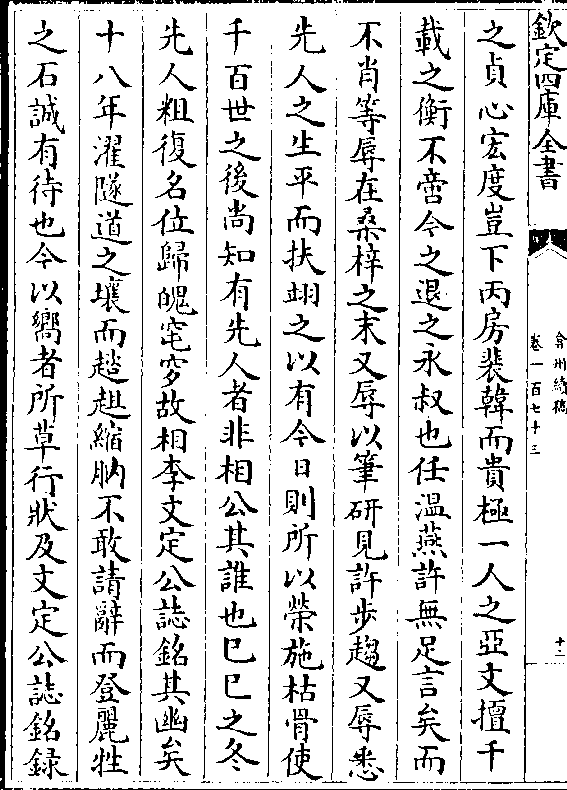 欽定四庫全書
弇州續稿
卷一百七十三
十二
之貞心宏度豈下丙房裴韓而貴極一人之亞文擅千
載之衡不啻今之退之永叔也任溫燕許無足言矣而
不肖等辱在桑梓之末又辱以筆研見許步趨又辱悉
先人之生平而扶翊之以有今日則所以榮施枯骨使
千百世之後尚知有先人者非相公其誰也已巳之冬
先人粗復名位歸魄窀穸故相李文定公誌銘其幽矣
十八年濯隧道之壤而趦趄縮朒不敢請辭而登麗牲
之石誠有待也今以嚮者所草行狀及文定公誌銘録